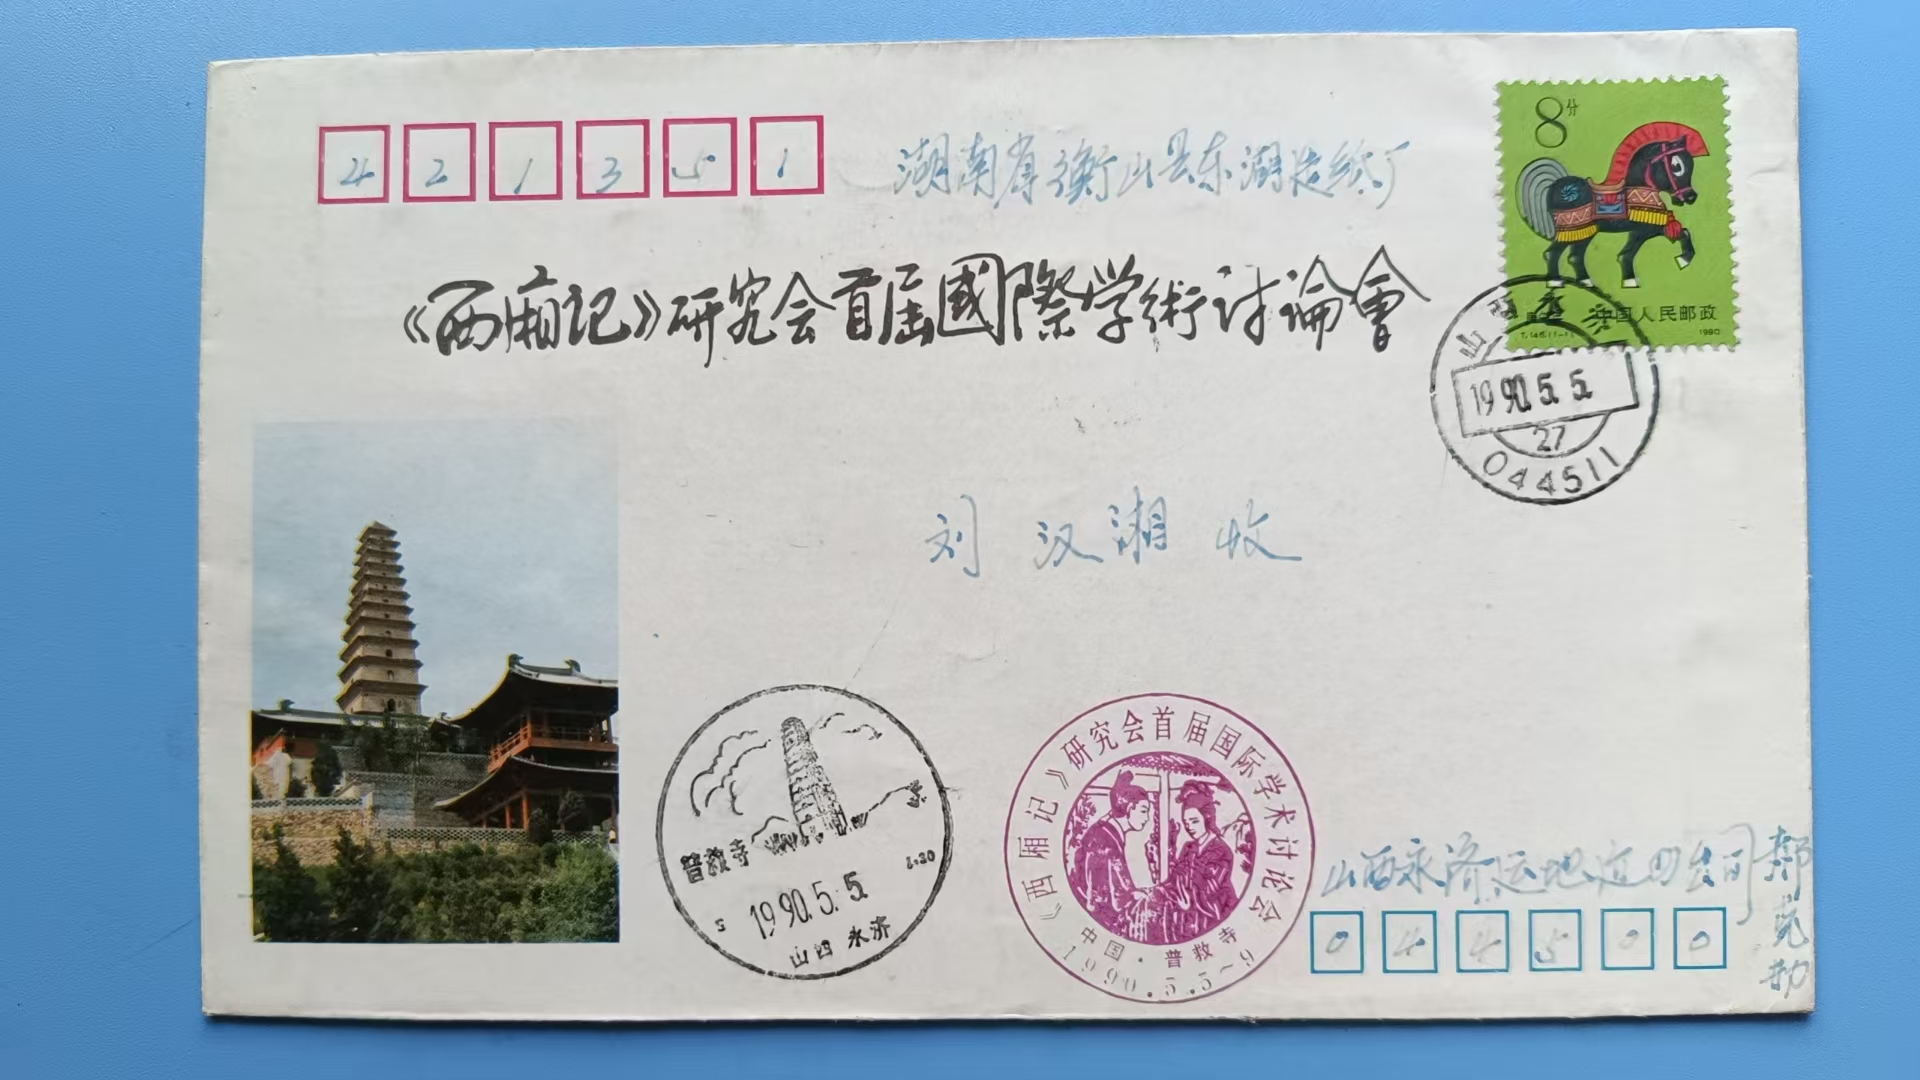 421351
湖南省衡山县东湖造纸厂
8分
中国人民邮政
T.146.(1-1)
1990
《西厢记》研究会首届國際学術讨論會
山西永济
1990.5.5.
27
044511
刘汉湘 收
普救寺
1990.5.5.
山西 永济
《西厢记》研究会首届国际学术讨论会
中国·普救寺
1990.5.5~9
山西永济运地
公司
044500